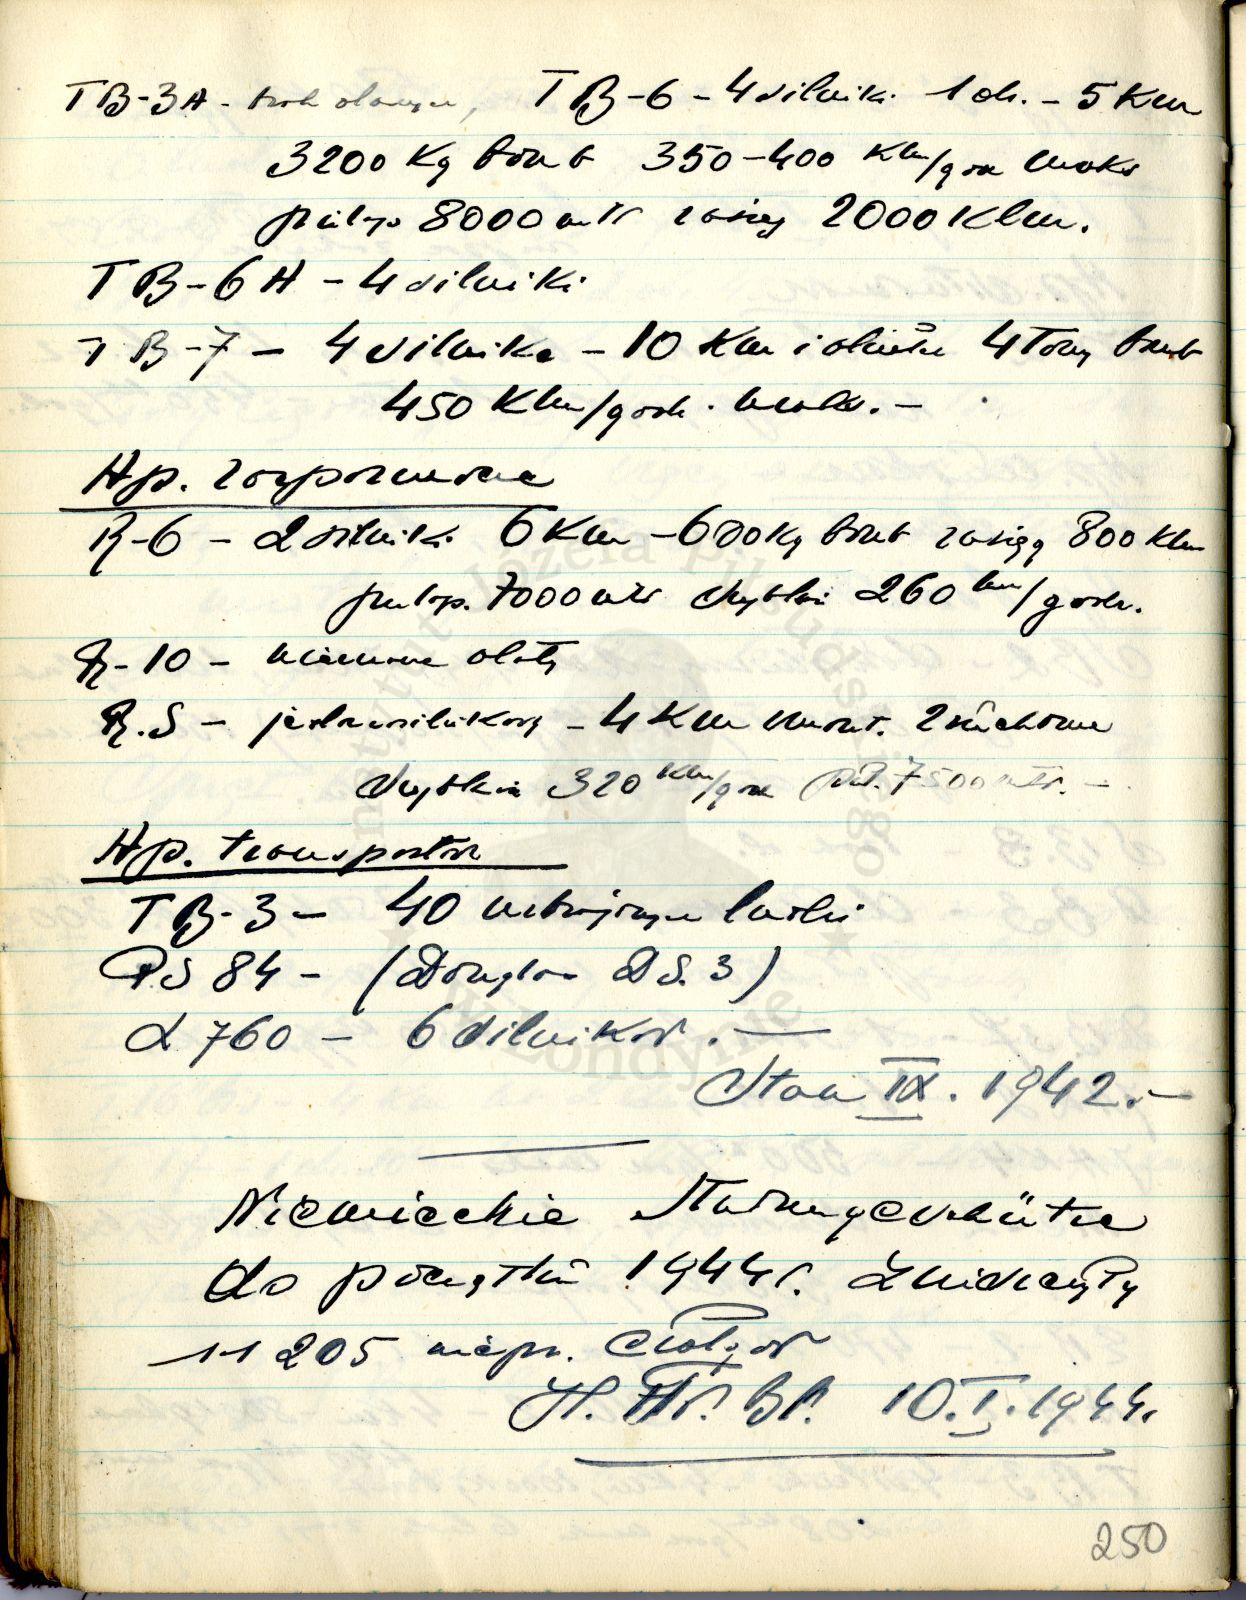 TB-3A - brak danych, TB-6 - 4 silniki 1 dz. - 5 Km
3200 Kg bomb 350-400 Klm/godz maks
pułap 8000 mtr zasięg 2000 Klm.
TB-6A - 4 silniki
TB-7 - 4 silniki - 10 Km i 4 Tony bomb
450 Klm/godz. maks. -
Np. rozpoznawcze
R-6 - 2 silniki 6 Km - 600 Kg bomb zasięg 800 Klm
pułap. 7000 mtr szybkość 260 klm/godz.
R-10 -
R.S - jednosilnikowy - 4 Km 2 ruchome
szybkość 320 Klm/godz Puł. 7500 mtr. -
Np. transportow
TB-3 - 40 ludzi
PS 84 - (Douglas DS. 3)
L 760 - 6 silników. -
Stan IX. 1942. -
Niemieckie Sturmgeschütze
do początku 1944 r. zniszczyły
11205 niepr. czołgów
10.I.1944.
250
Instytut Józefa Piłsudskiego
w Londynie